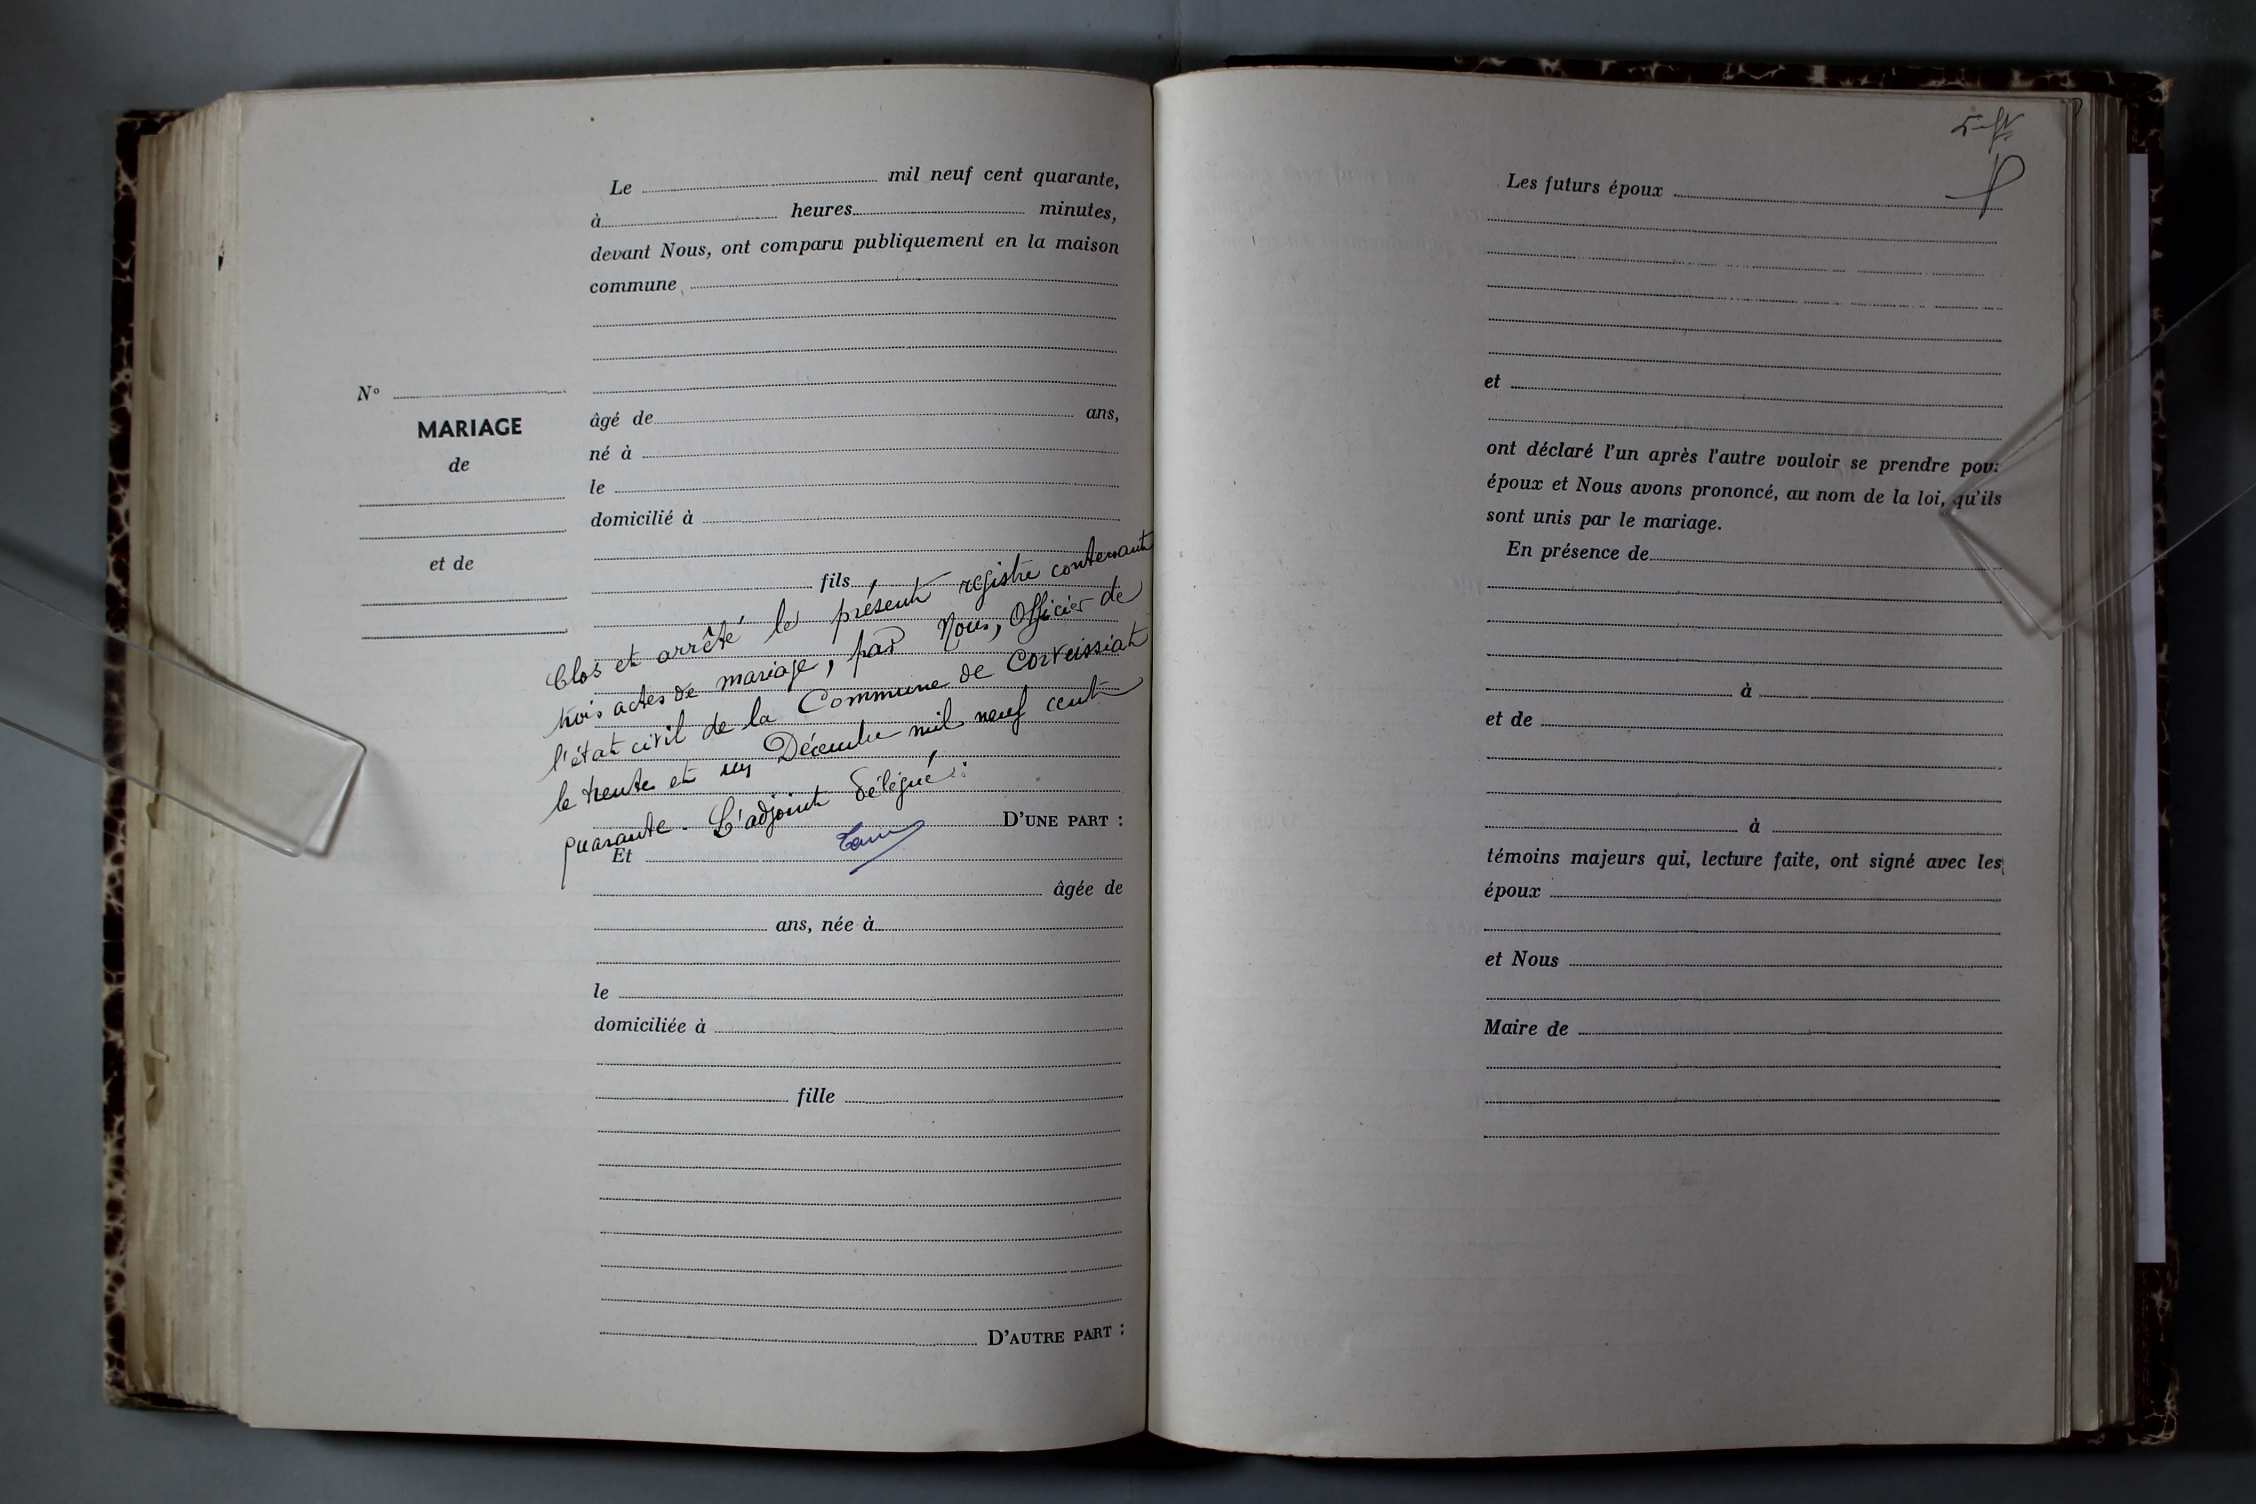 Le mil neuf cent quarante,
à heures minutes,
devant Nous, ont comparu publiquement en la maison
commune
N°
MARIAGE
de
et de
âgé de ans,
né à
le
domicilié à
fils
Clos et arrêté le présent registre contenant
trois actes de mariage, par Nous, Officier de
l'état civil de la Commune de Corveissiat
le trente et un Décembre mil neuf cent
quarante. L'adjoint délégué :
D'UNE PART :
Et
âgée de
ans, née à
le
domiciliée à
fille
D'AUTRE PART :
Les futurs époux
et
ont déclaré l'un après l'autre vouloir se prendre pour
époux et Nous avons prononcé, au nom de la loi, qu'ils
sont unis par le mariage.
En présence de
à
et de
à
témoins majeurs qui, lecture faite, ont signé avec les
époux
et Nous
Maire de